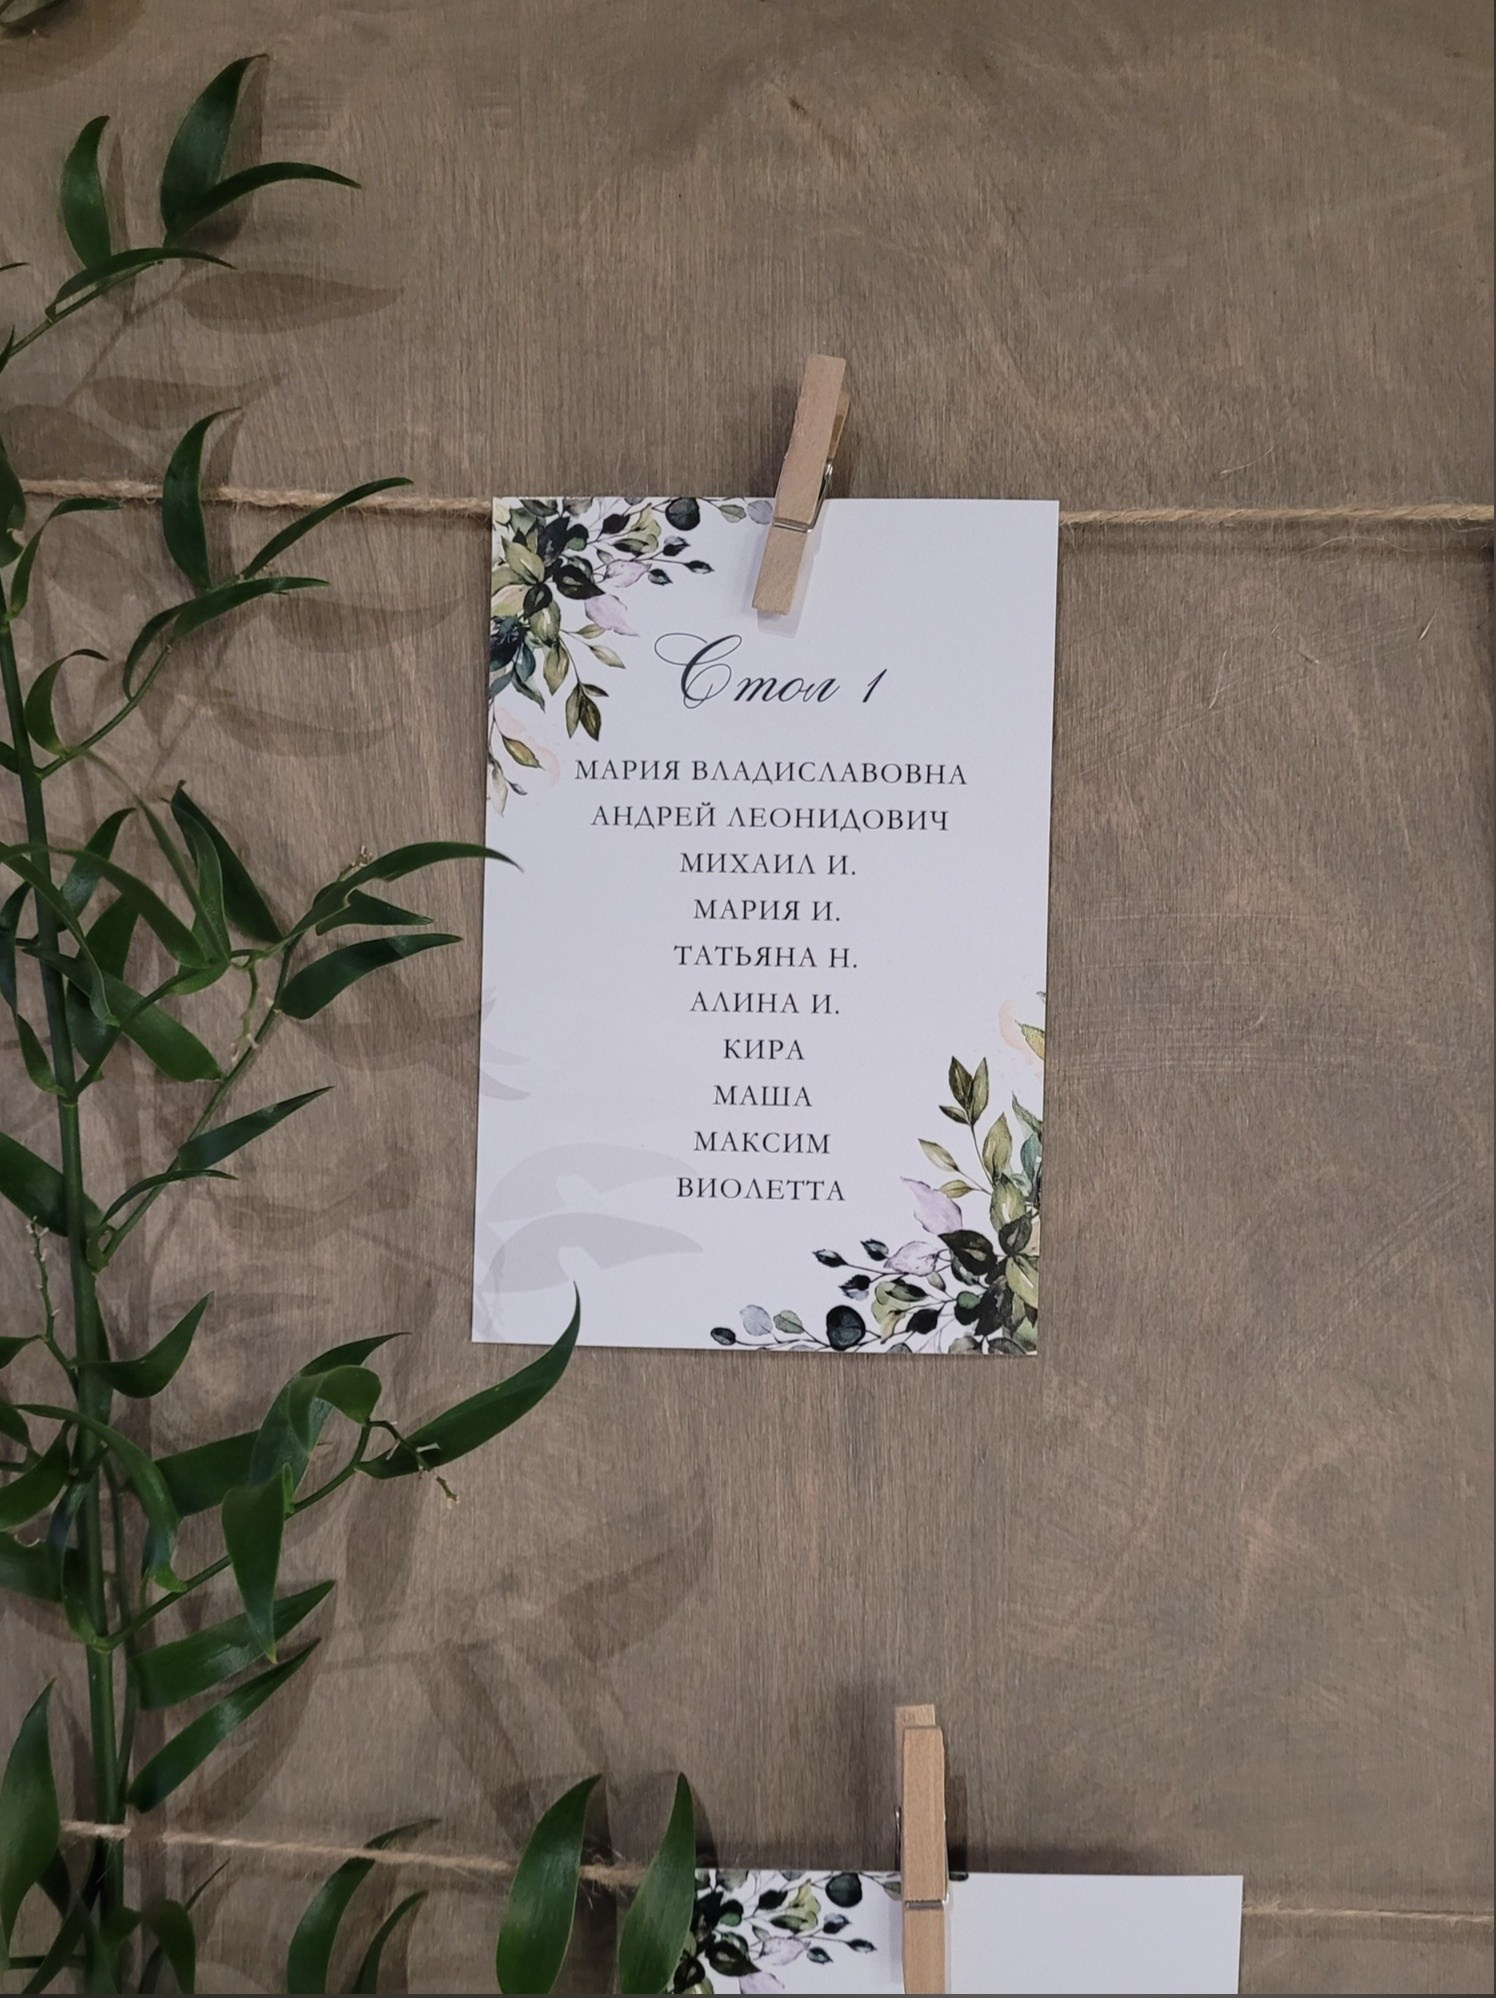 Стол 1
МАРИЯ ВЛАДИСЛАВОВНА
АНДРЕЙ ЛЕОНИДОВИЧ
МИХАИЛ И.
МАРИЯ И.
ТАТЬЯНА Н.
АЛИНА И.
КИРА
МАША
МАКСИМ
ВИОЛЕТТА